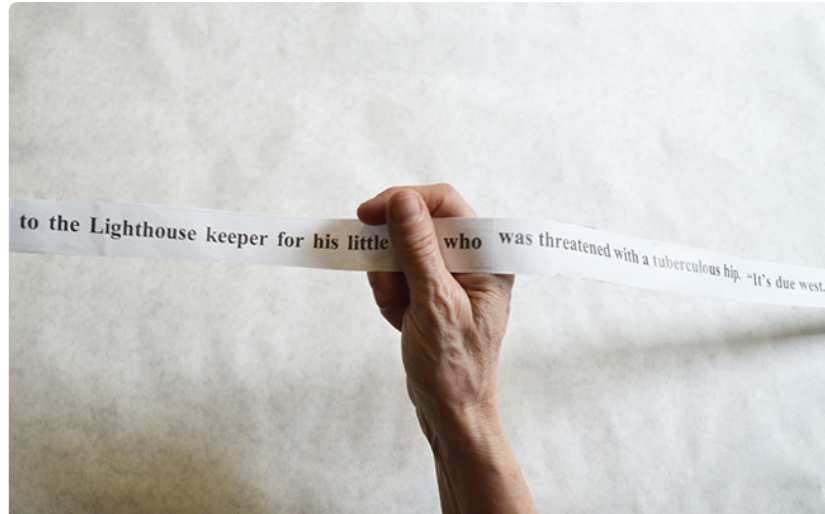 to the Lighthouse keeper for his little who was threatened with a tuberculous hip. “It’s due west.